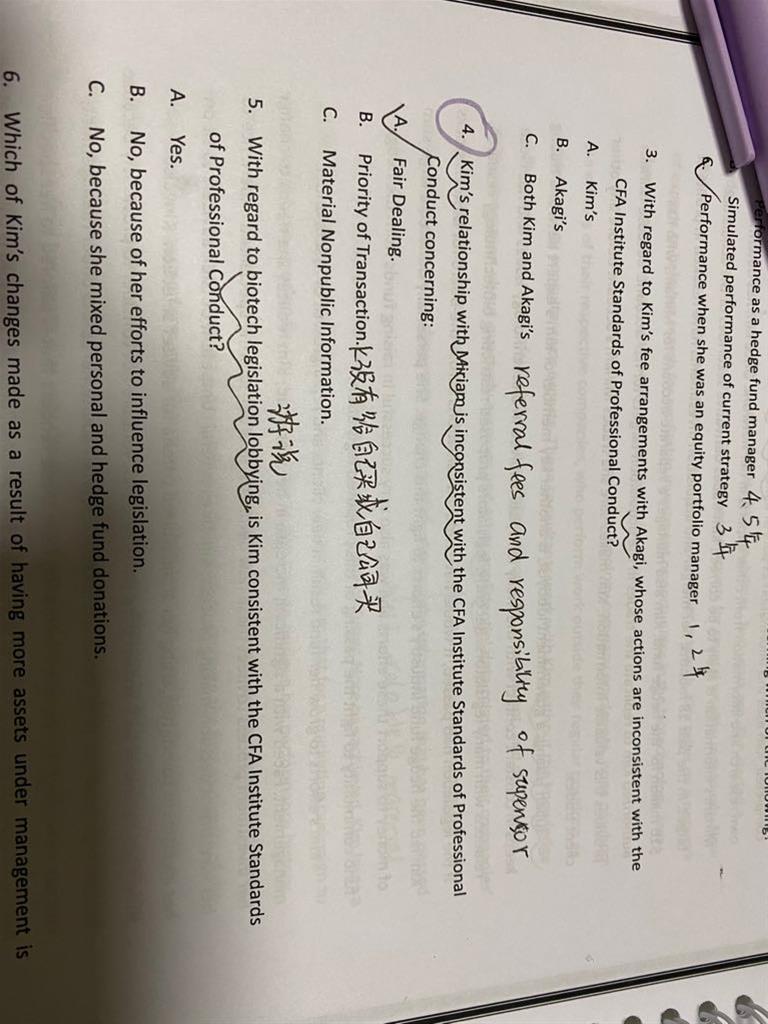 Performance as a hedge fund manager 4、5年
Simulated performance of current strategy 3年
Performance when she was an equity portfolio manager 1, 2年
3. With regard to Kim's fee arrangements with Akagi, whose actions are inconsistent with the
CFA Institute Standards of Professional Conduct?
A. Kim's
B. Akagi's
C. Both Kim and Akagi's referral fees and responsibility of supervisor
4. Kim's relationship with Miriam is inconsistent with the CFA Institute Standards of Professional
Conduct concerning:
A. Fair Dealing.
B. Priority of Transaction. K没有给自己买或自己问买
C. Material Nonpublic Information.
游说
5. With regard to biotech legislation lobbying, is Kim consistent with the CFA Institute Standards
of Professional Conduct?
A. Yes.
B. No, because of her efforts to influence legislation.
C. No, because she mixed personal and hedge fund donations.
6. Which of Kim's changes made as a result of having more assets under management is